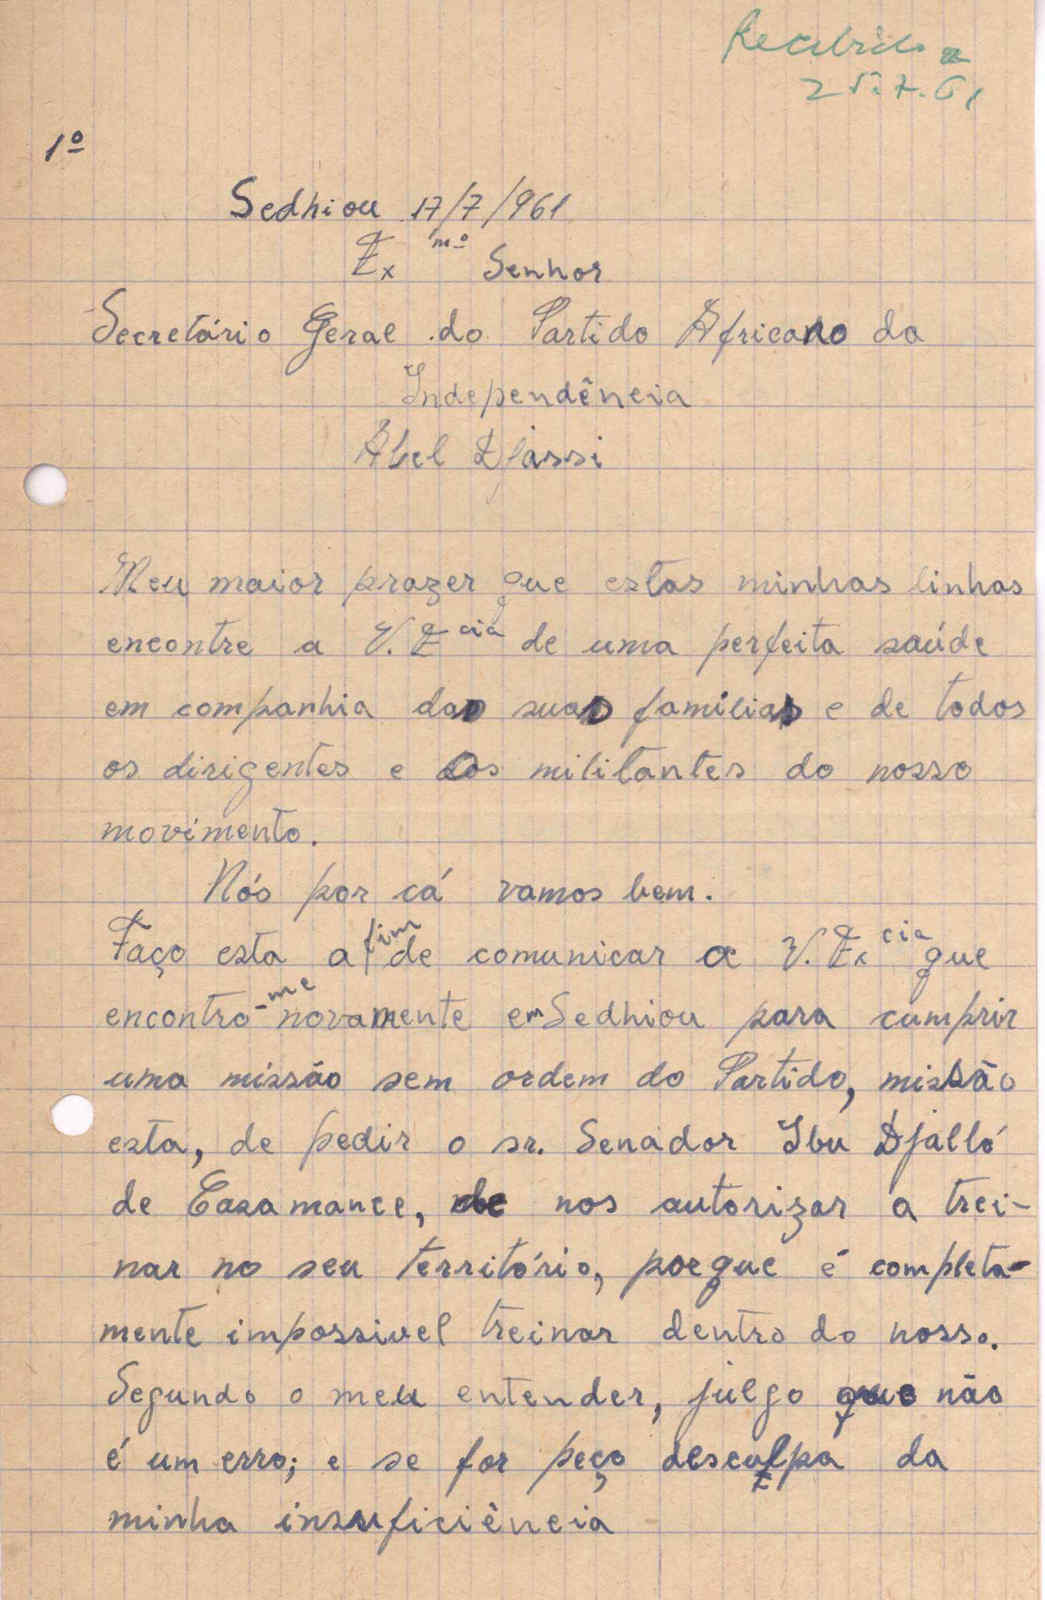 Recebida a
25.7.61
1º
Sedhiou 17/7/961
Exmº Senhor
Secretário Geral do Partido Africano da
Independência
Abel Djassi
Meu maior prazer que estas minhas linhas
encontre a V. Ecia de uma perfeita saúde
em companhia das suas familias e de todos
os dirigentes e dos militantes do nosso
movimento.
Nós por cá vamos bem.
Faço esta a fim de comunicar a V. Excia que
encontro-me novamente em Sedhiou para cumprir
uma missão sem ordem do Partido, missão
esta, de pedir o sr. Senador Ibu Djalló
de Casamance, de nos autorizar a trei-
nar no seu território, porque é completa-
mente impossivel treinar dentro do nosso.
Segundo o meu entender, julgo que não
é um erro; e se for peço desculpa da
minha insuficiência